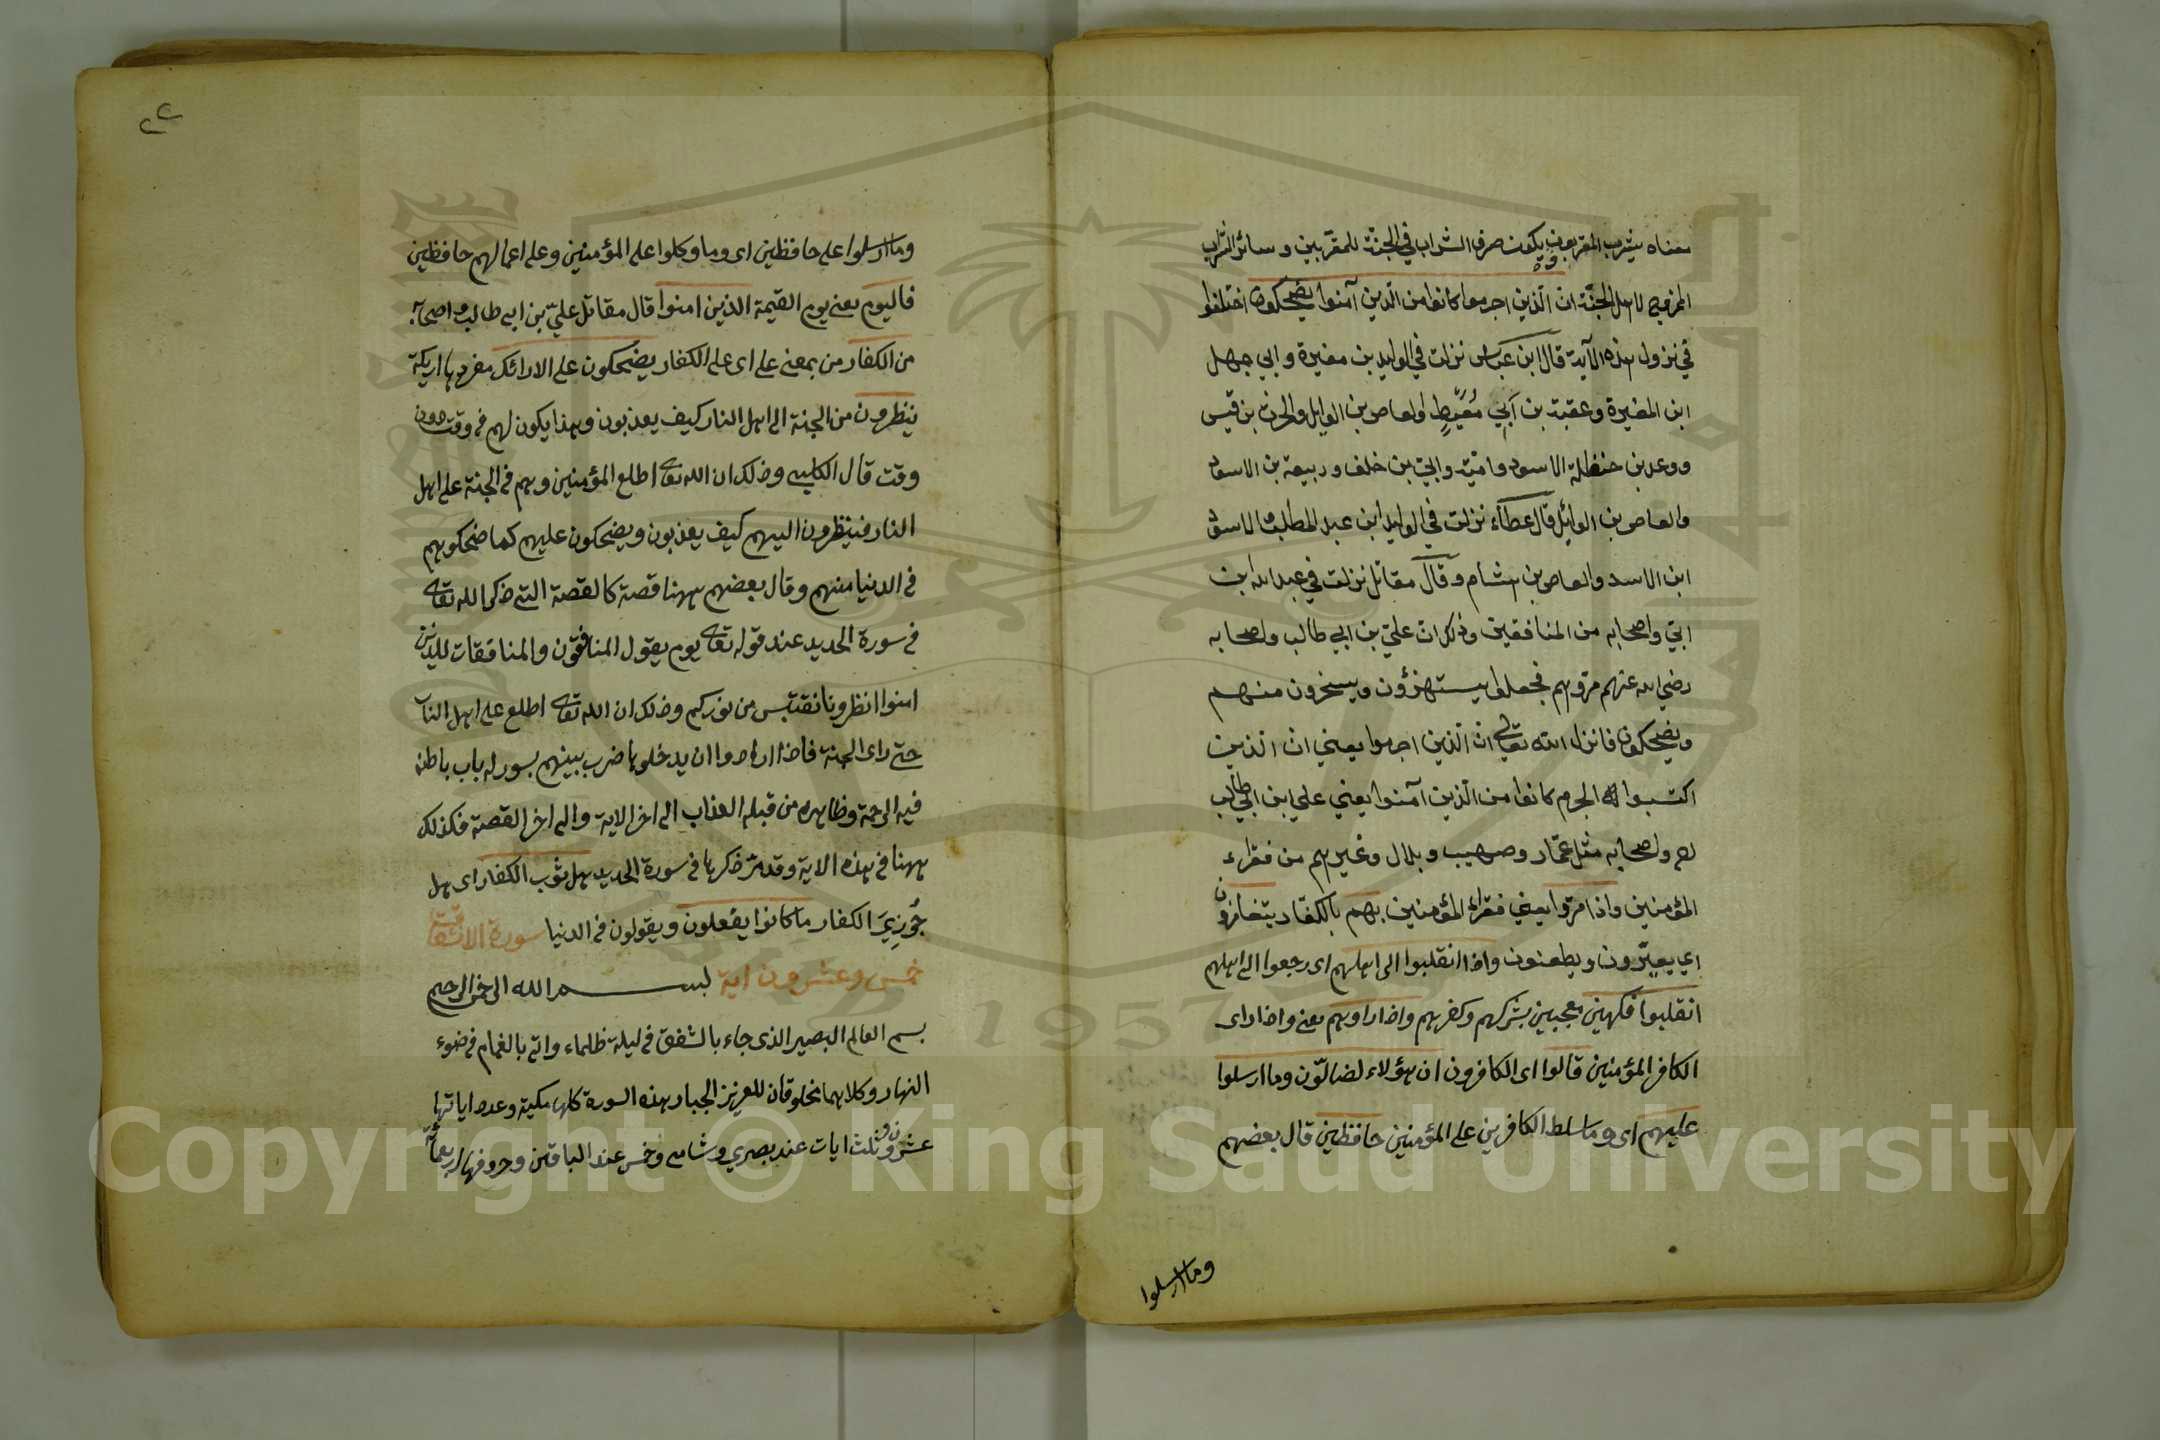 معناه يشرب المقربون ويكون صرف الشراب في الجنة للمقرّبين وسائر الشراب
الممزوج لاهل الجنّة انّ الّذين اجرموا كانوا من الّذين آمنوا يضحكون اختلفوا
في نزول هذه الآية قال ابن عبّاس نزلت في الوليد بن مغيرة وابي جهل
ابن المغيرة وعقبة بن ابي مُعَيْطٍ والعاص بن الوايل والحرث بن قيس
حنظلة الاسود وامّية وابيّ بن خلف وربيعة بن الاسود
والعاص بن الوائل قال عطاء نزلت في الوليد ابن عبد المطلب الاسود
ابن الاسد والعاص بن هشام وقال مقاتل نزلت في عبد الله ابن
ابيّ واصحابه من المنافقين وذلك ان عليّ بن ابي طالب واصحابه
رضي الله عنهم مرّ بهم فجعلوا يستهزؤن ويسخرون منهم
ويضحكون فانزل الله تعالى انّ الّذين اجرموا يعني انّ الّذين
اكتسبوا الجرم كانوا من الّذين آمنوا يعني علي ابن ابي طالب
رضي واصحابه مثل عمّار وصهيب وبلال وغيرهم من فقراء
المؤمنين واذا مرّوا يعني فقراء المؤمنين بهم بالكفّار يتغامزون
اي يعيّرون ويطعنون واذا انقلبوا الى اهلهم اى رجعوا الى اهلهم
انقلبوا فكهين معجبين بشركهم وكفرهم واذا راوهم يعنى واذا راى
الكافر المؤمنين قالوا اى الكافرون ان هؤلاء لضالّون وما ارسلوا
عليهم اى وما سلط الكافرين على المؤمنين حافظين قال بعضهم
وما ارسلوا
٢٢
وما ارسلوا على حافظين اى وما وكلوا على المؤمنين وعلى اعمالهم حافظين
فاليوم يعنى يوم القيمة الذين امنوا قال مقاتل عليّ بن ابى طالب واصحابه
من الكفار من بمعنى على اى على الكفار يضحكون على الارائك مفردها اريكة
ينظرون من الجنة الى اهل النار كيف يعذبون وهذا يكون لهم فى وقت دون
وقت قال الكلبى وذلك ان الله تعالى اطلع المؤمنين وهم فى الجنة على اهل
النار فينظرون اليهم كيف يعذبون ويضحكون عليهم كما ضحكوا بهم
فى الدنيا منهم وقال بعضهم ههنا قصة كالقصة التى ذكر الله تعالى
فى سورة الحديد عند قوله تعالى يوم يقول المنافقون والمنافقات للذين
امنوا انظرونا نقتبس من نوركم وذلك ان الله تعالى اطلع على اهل النار
حتى راى الجنة فاذا ارادوا ان يدخلوها ضرب بينهم بسور له باب باطنه
فيه الرحمة وظاهره من قبله العذاب الى اخر الاية والى اخر القصة فكذلك
ههنا فى هذه الاية وقد مرّ ذكرها فى سورة الحديد هل ثوب الكفار اى هل
جُوزِىَ الكفار ما كانوا يفعلون ويقولون فى الدنيا سورة الانشقت
خمس وعشرون اية بسم الله الرحمن الرحيم
بسم العالم البصير الذى جاء بالشفق فى ليلة ظلماء واتى بالغمام فى ضوء
النهار وكلاهما مخلوقان للعزيز الجبار هذه السورة كلها مكية وعدد اياتها
عشرون وثلث ايات عند بصري وشامى وخمس عند الباقين وحروفها اربعمأة
Copyright © King Saud University
1957